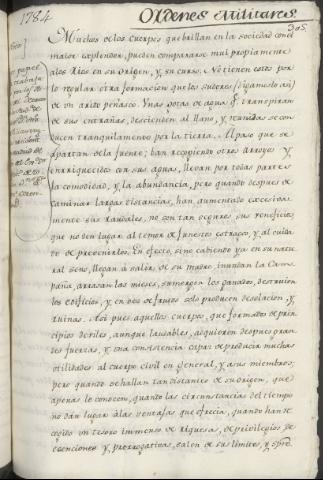 1784
Ordenes Militares
305.
Muchos de los cuerpos que brillan en la sociedad con el
maior explendor, pueden compararse mui propiamente
a los Rios en su origen, y su curso. No tienen estos por
lo regular otra formacion que los sudores (digamoslo asi)
de un arido peñasco. Unas gotas de agua q.e transpiran
de sus entrañas, descienden al llano, y reunidas se con
ducen tranquilamente por la tierra. Al paso que se
apartan de la fuente; ban recogiendo otros arroyos y
enrriquecidos con sus aguas, llevan por todas partes
la comodidad, y la abundancia, pero quando despues de
caminar largas distancias, han aumentado excesiva
mente sus raudales, no son tan seguros sus beneficios
que no den lugar al temor de funestos estragos, y al cuida
do de precaverlos. En efecto, sino cabiendo ya en su natu
ral seno, llegan á salir de su madre, inundan la Cam
paña, arrasan las mieses, sumergen los ganados, destruien
los edificios, y en vez de frutos solo producen desolacion, y
ruinas. Asi pues aquellos cuerpos, que formados de prin
cipios debiles, aunque laudables, adquieren despues gran
des fuerzas, y una consistencia capaz de producir muchas
utilidades al cuerpo civil en general, y a sus miembros;
pero quando se hallan tan distantes de su origen, que
apenas le conocen, quando las circunstancias del tiempo
no dan lugar á las ventajas que ofrecia, quando han re
cogido un tesoro immenso de riquesas, de privilegios de
esenciones y prerrogativas, salen de sus limites, y